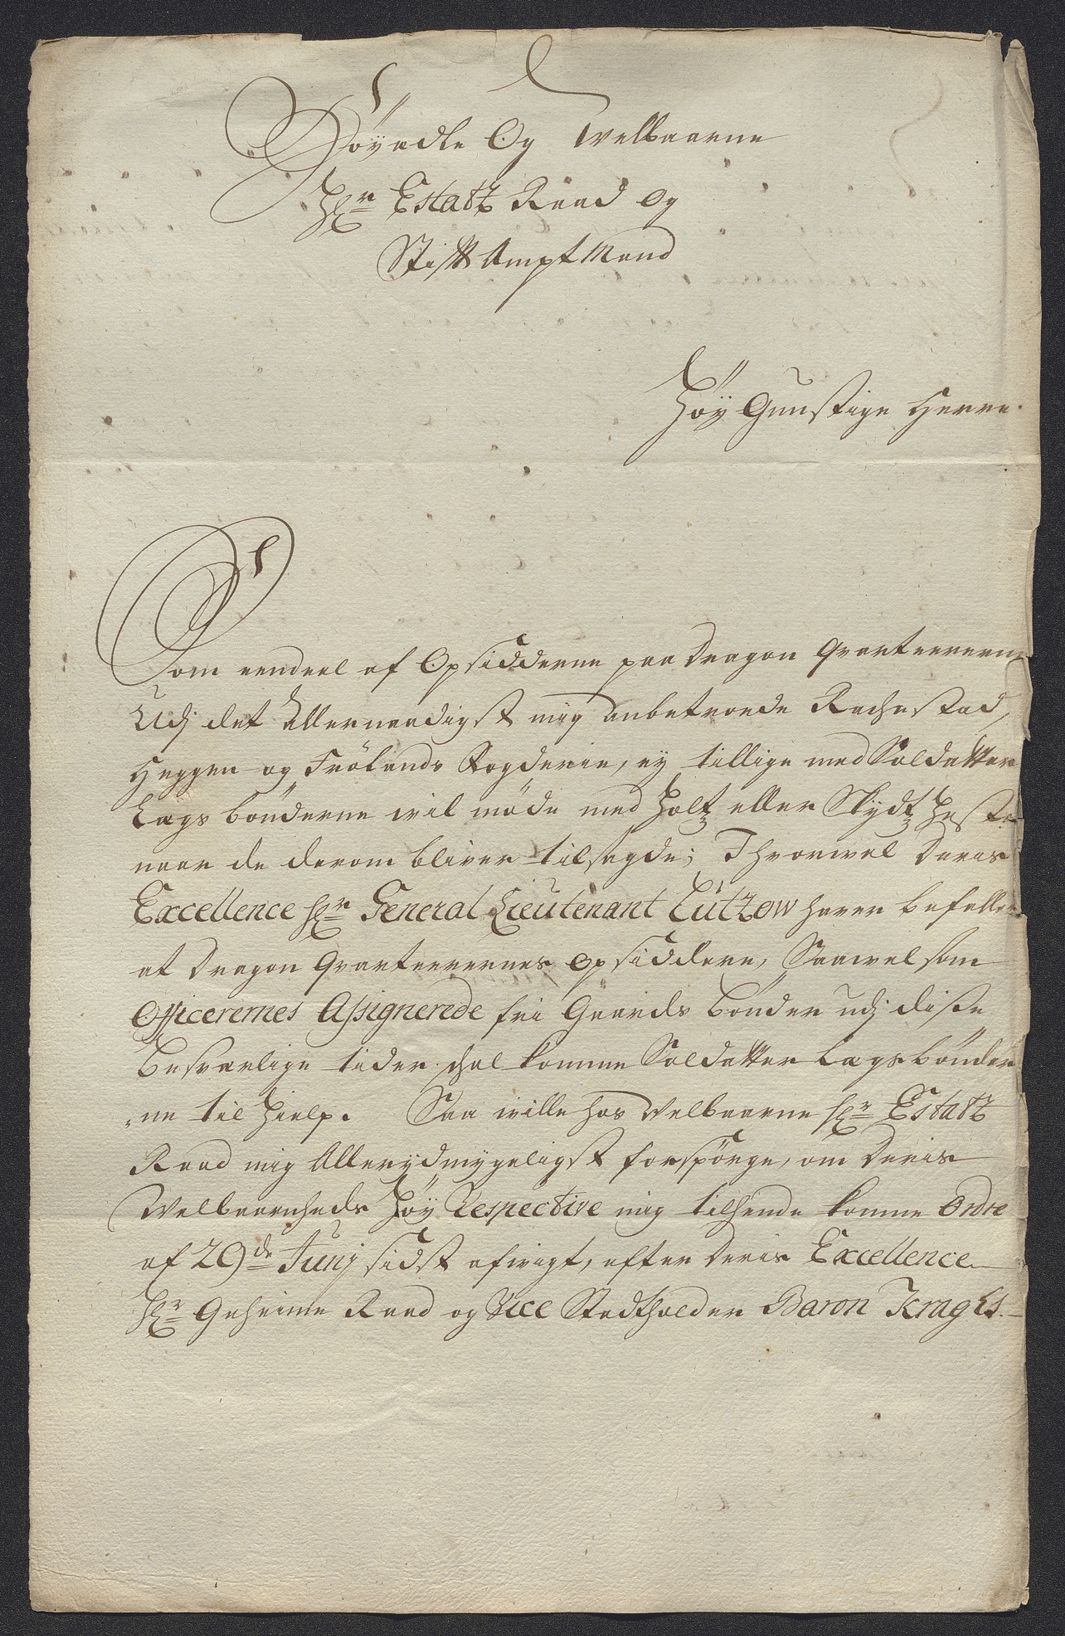 Høyædle Og Welbaarne
Hr Estatz Raad og
Stifft Ampt Mand
Høy Gunstige Herre.
Som eendeel af Opsidderne paa Dragon Qvarteererne
Udj det Allernaadigst mig anbetroede Rachestad,
Heggen og Frølands Fogderie, ey tillige med Soldatter
Lægs bønderne wil møde med Holtz eller Skydtz Heste
naar de derom bliver tilsagde; Ihvorvel Deris
Excellence Hr General Lieutenant Lützow haver befallet
at Dragon Qvarteerernes Opsiddere, Saavel som
Officerernes Assignerede frj Gaards Bønder udj disse
besværlige tider skal komme Soldatter Lægsbønder
ne til Hielp. Saa wille hos Welbaarne Hr Estatz
Raad mig Allerydmygeligst forspørge, om Deris
Welbaarenheds Høy Respective mig tilhende komne Ordre
af 29de Junj sidst afvigt, efter Deris Excellence
Hr Geheime Raad og Vice Stadtholder Baron Kraghs